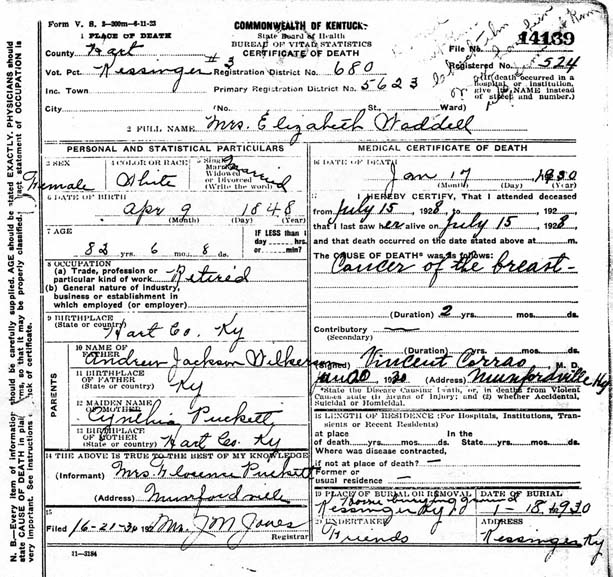 Form V. S. 2—300m—6-11-23
COMMONWEALTH OF KENTUCKY
State Board of Health
BUREAU OF VITAL STATISTICS
CERTIFICATE OF DEATH
1 PLACE OF DEATH
County Hart
File No. 14139
Vot. Pct. Kessinger #3 Registration District No. 680
Registered No. 524
Inc. Town
Primary Registration District No. 5623
(If death occurred in a hospital or institution, give its NAME instead of street and number.)
City (No. St., Ward)
2 FULL NAME Mrs. Elizabeth Waddell
PERSONAL AND STATISTICAL PARTICULARS
3 SEX
Female
4 COLOR OR RACE
White
5 Single
Married
Widowed
or Divorced
(Write the word)
6 DATE OF BIRTH
Apr 9 1848
(Month) (Day) (Year)
7 AGE
82 yrs. 6 mos. 8 ds.
IF LESS than 1
day hrs.
or min?
8 OCCUPATION
(a) Trade, profession or
particular kind of work Retired
(b) General nature of industry,
business or establishment in
which employed (or employer)
9 BIRTHPLACE
(State or country) Hart Co. Ky
PARENTS
10 NAME OF
FATHER Andrew Jackson
11 BIRTHPLACE
OF FATHER
(State or country) Ky
12 MAIDEN NAME
OF MOTHER Cynthia Puckett
13 BIRTHPLACE
OF MOTHER
(State or country) Hart Co. Ky
14 THE ABOVE IS TRUE TO THE BEST OF MY KNOWLEDGE
(Informant) Mrs Florence Puckett
(Address) Munfordville
15
Filed 6-21-30 192 Mrs. J M Jones
Registrar
11—3184
MEDICAL CERTIFICATE OF DEATH
16 DATE OF DEATH
Jan 17 1930
(Month) (Day) (Year)
17 I HEREBY CERTIFY, That I attended deceased
from July 15, 1928, to 192
that I last saw her alive on July 15, 1928,
and that death occurred on the date stated above at m.
The CAUSE OF DEATH* was as follows:
Cancer of the breast-
(Duration) 2 yrs. mos. ds.
Contributory —
(Secondary)
(Duration) yrs. mos. ds.
(Signed) Vincent Corrao M. D.
Jan 20 1930 (Address) Munfordville Ky
*State the Disease Causing Death, or, in deaths from Violent
Causes state (1) Means of Injury; and (2) whether Accidental,
Suicidal or Homicidal.
18 LENGTH OF RESIDENCE (For Hospitals, Institutions, Transients or Recent Residents)
at place In the
of death yrs. mos. ds. State yrs. mos. ds.
Where was disease contracted,
if not at place of death? —
Former or
usual residence —
19 PLACE OF BURIAL OR REMOVAL
Home burying ground
Kessinger Ky
DATE OF BURIAL
1-18, 1930
20 UNDERTAKER
Friends
ADDRESS
Kessinger Ky
N. B.—Every item of information should be carefully supplied. AGE should be stated EXACTLY. PHYSICIANS should
state CAUSE OF DEATH in plain terms, so that it may be properly classified. Exact statement of OCCUPATION is
very important. See instructions on back of certificate.